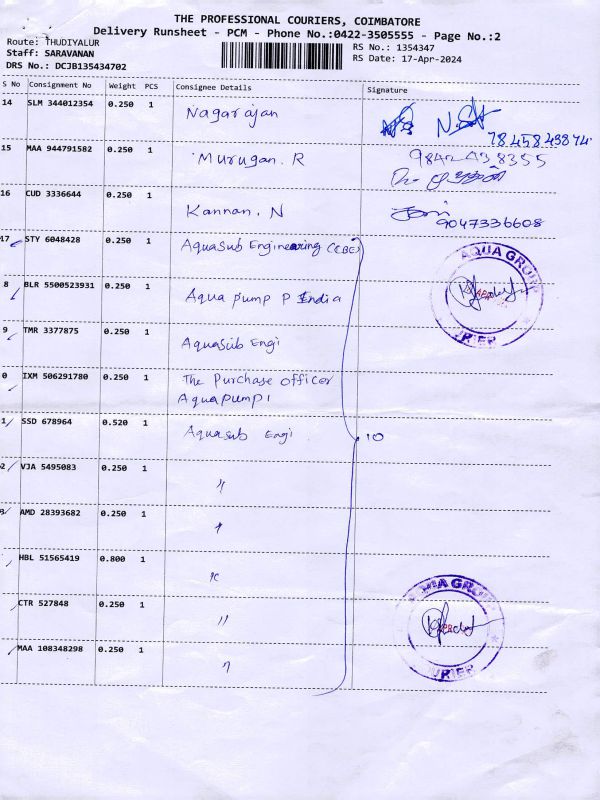 THE PROFESSIONAL COURIERS, COIMBATORE
Delivery Runsheet - PCM - Phone No.:0422-3505555 - Page No.:2
Route: THUDIYALUR
Staff: SARAVANAN
DRS No.: DCJB135434702
RS No.: 1354347
RS Date: 17-Apr-2024
S No Consignment No Weight PCS Consignee Details Signature
14 SLM 344012354 0.250 1 Nagarajan
78 458 43894
15 MAA 944791582 0.250 1 Murugan. R 9842438355
16 CUD 3336644 0.250 1 Kannan. N 9047336608
17 STY 6048428 0.250 1 AquaSub Engineering
AQUA GROUP
8 BLR 5500523931 0.250 1 Aqua pump P India
9 TMR 3377875 0.250 1 AquaSub Engi
0 IXM 506291780 0.250 1 The Purchase officer
Aquapump1
1 SSD 678964 0.520 1 Aquasub Engi 10
2 VJA 5495083 0.250 1 "
3 AMD 28393682 0.250 1 "
HBL 51565419 0.800 1 "
CTR 527848 0.250 1 "
AQUA GROUP
MAA 108348298 0.250 1 "